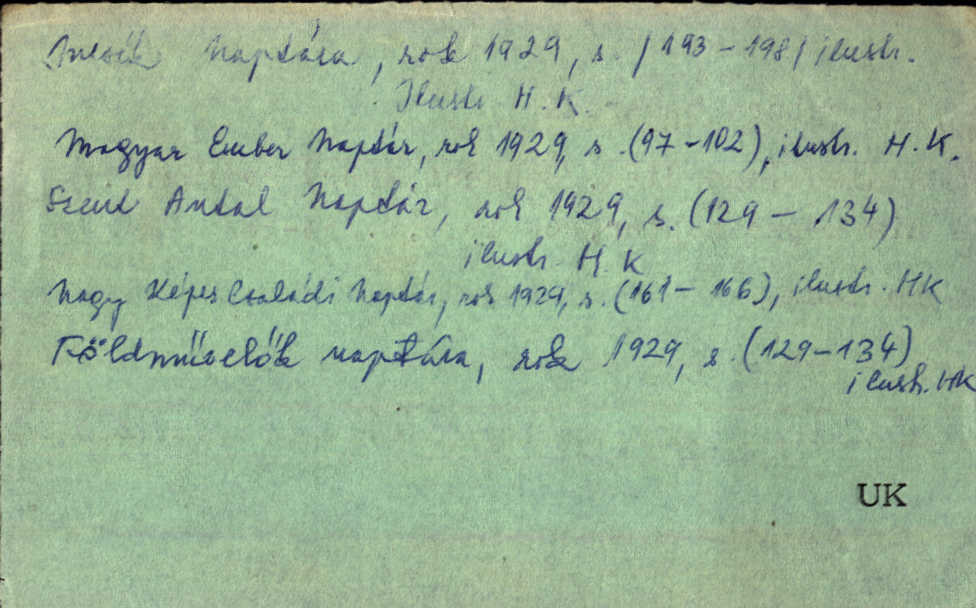 Naptára, rok 1929, s. /193-198/ ilustr.
Ilustr. H. K.
Magyar Ember Naptár, rok 1929, s. (97-102), ilustr. H. K.
Szent Antal Naptár, rok 1929, s. (129 - 134)
ilustr. H. K
Nagy Képes Családi Naptár, rok 1929, s. (161 - 166), ilustr. HK
Földművelők naptára, rok 1929, s. (129-134)
ilustr. HK
UK